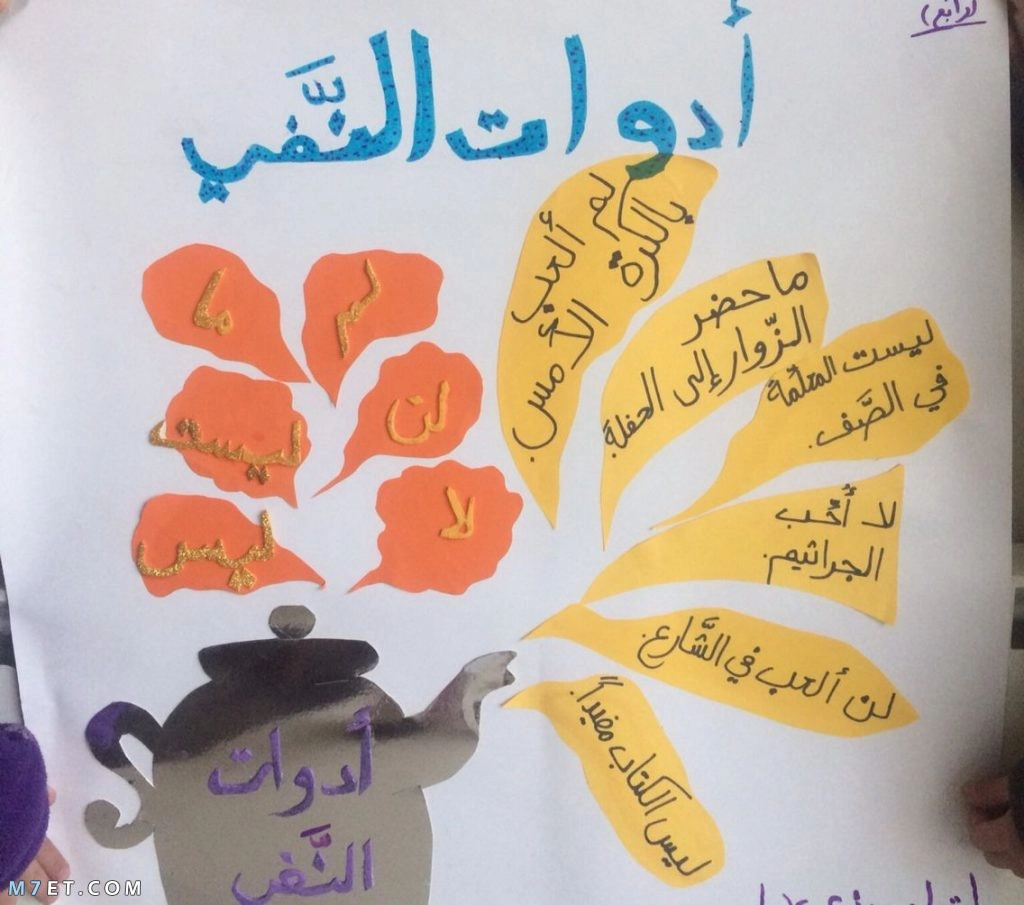 أدوات النَّفي
لم
ما
لن
ليست
لا
ليس
لم ألعب
بالكرة الأمس.
ما حضر
الزّوار إلى الحفلة.
ليست المعلّمة
في الصَّف.
لا أُحب
الجراثيم.
لن ألعب في الشَّارع.
ليس الكتاب مفيداً.
أدوات
النَّفي
M7ET.COM